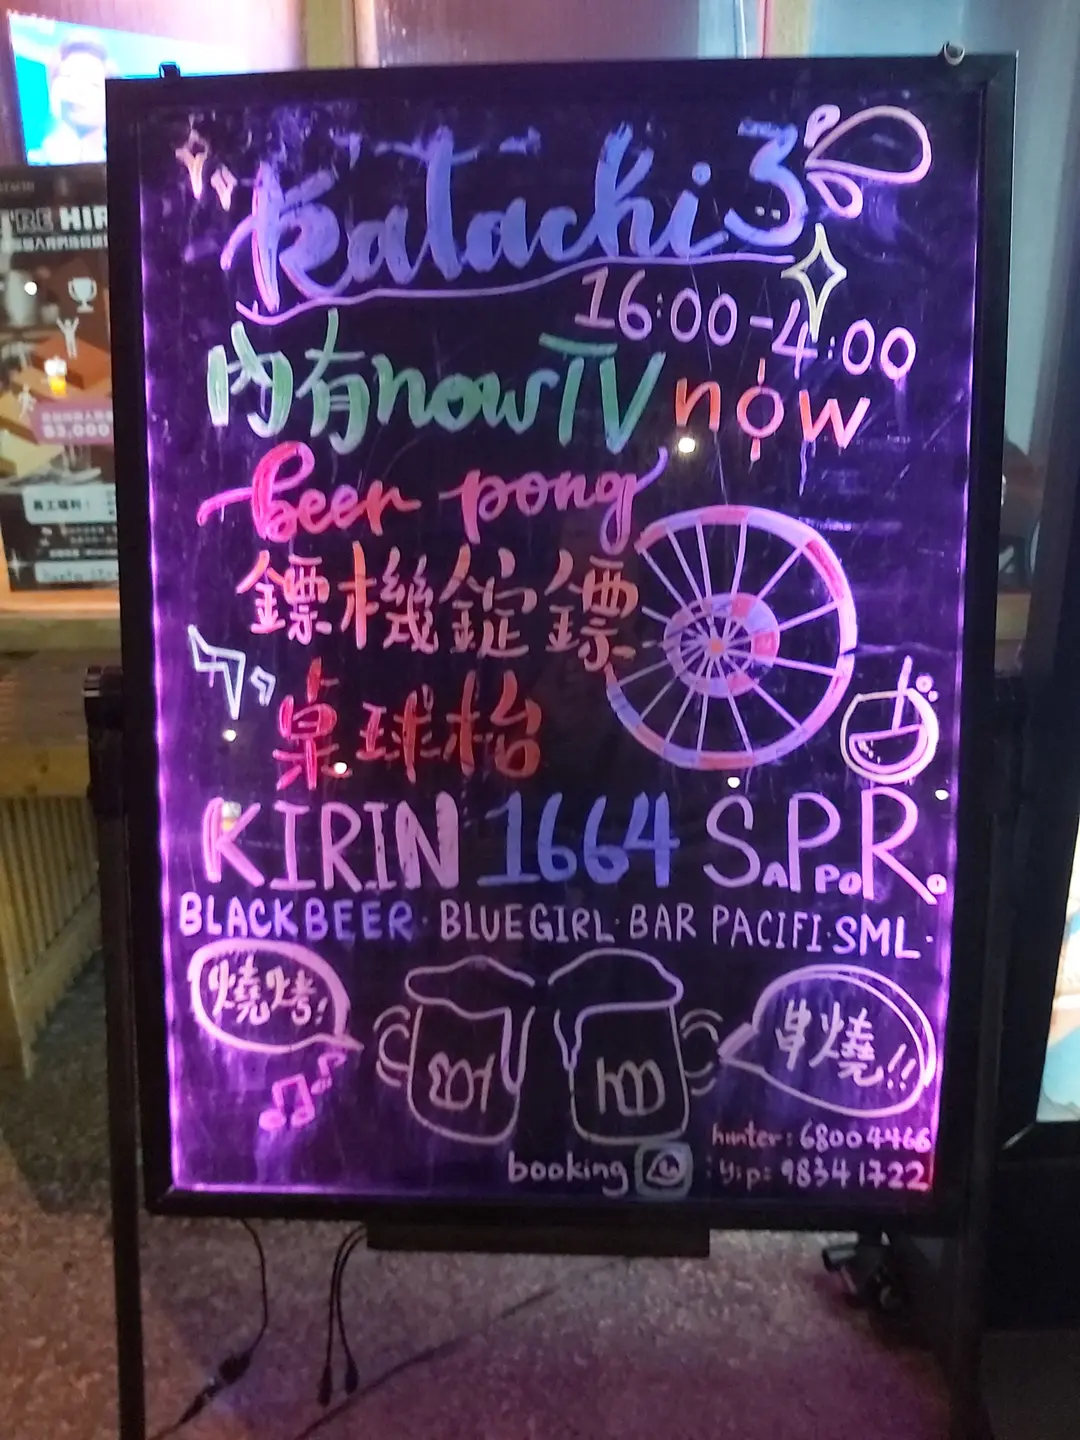 Katachi 3
16:00-4:00
內有now TV now
beer pong
鏢機錠鏢
桌球枱
KIRIN 1664 SAPPORO
BLACKBEER · BLUEGIRL · BAR PACIFI · SML ·
燒烤!
串燒!!
hunter: 68004466
booking : yip: 98341722
'RE HIR
$3,000
員工福利: